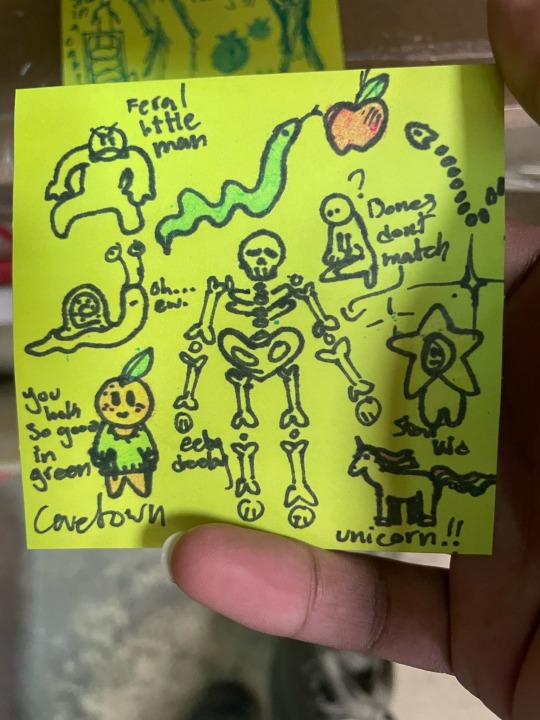 Feral
little
man
?
Bones
don't
match
oh...
ew.
you
look
so good
in
green
Cavetown
Star
kid
unicorn!!